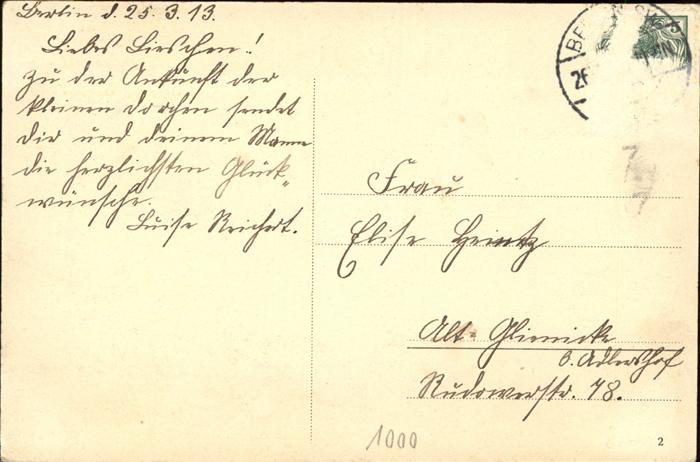 Berlin d. 25. 3. 13.
Liebes Lieschen!
Zu der Ankunft der
kleinen Dorchen sendet
dir und deinem Manne
die herzlichsten Glück-
wünsche.
Luise Reichert.
Frau
Elise Heintz
Alt-Glienicke
b. Adlershof
Rudowerstr. 48.
1000
2